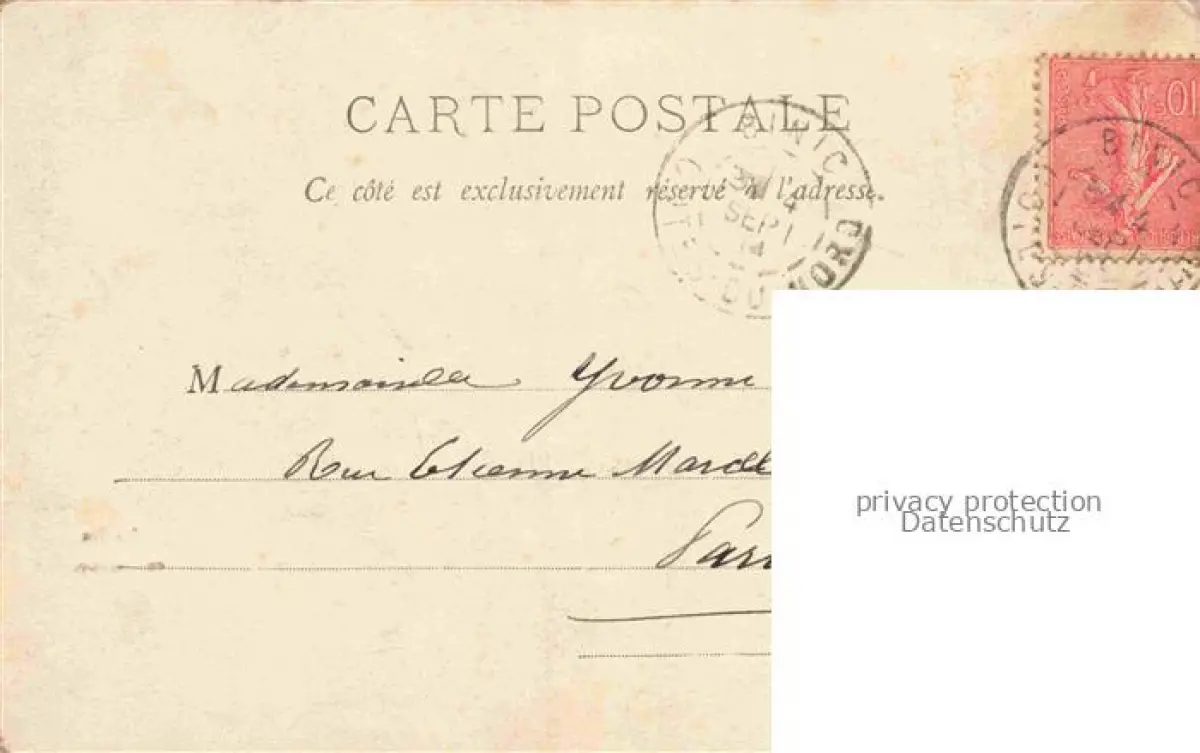 CARTE POSTALE
Ce côté est exclusivement réservé à l'adresse.
BINIC
4
SEPT
CÔTES DU NORD
10
BINIC
4
SEPT
Mademoiselle Yvonne
Rue Etienne Marcel
privacy protection
Datenschutz